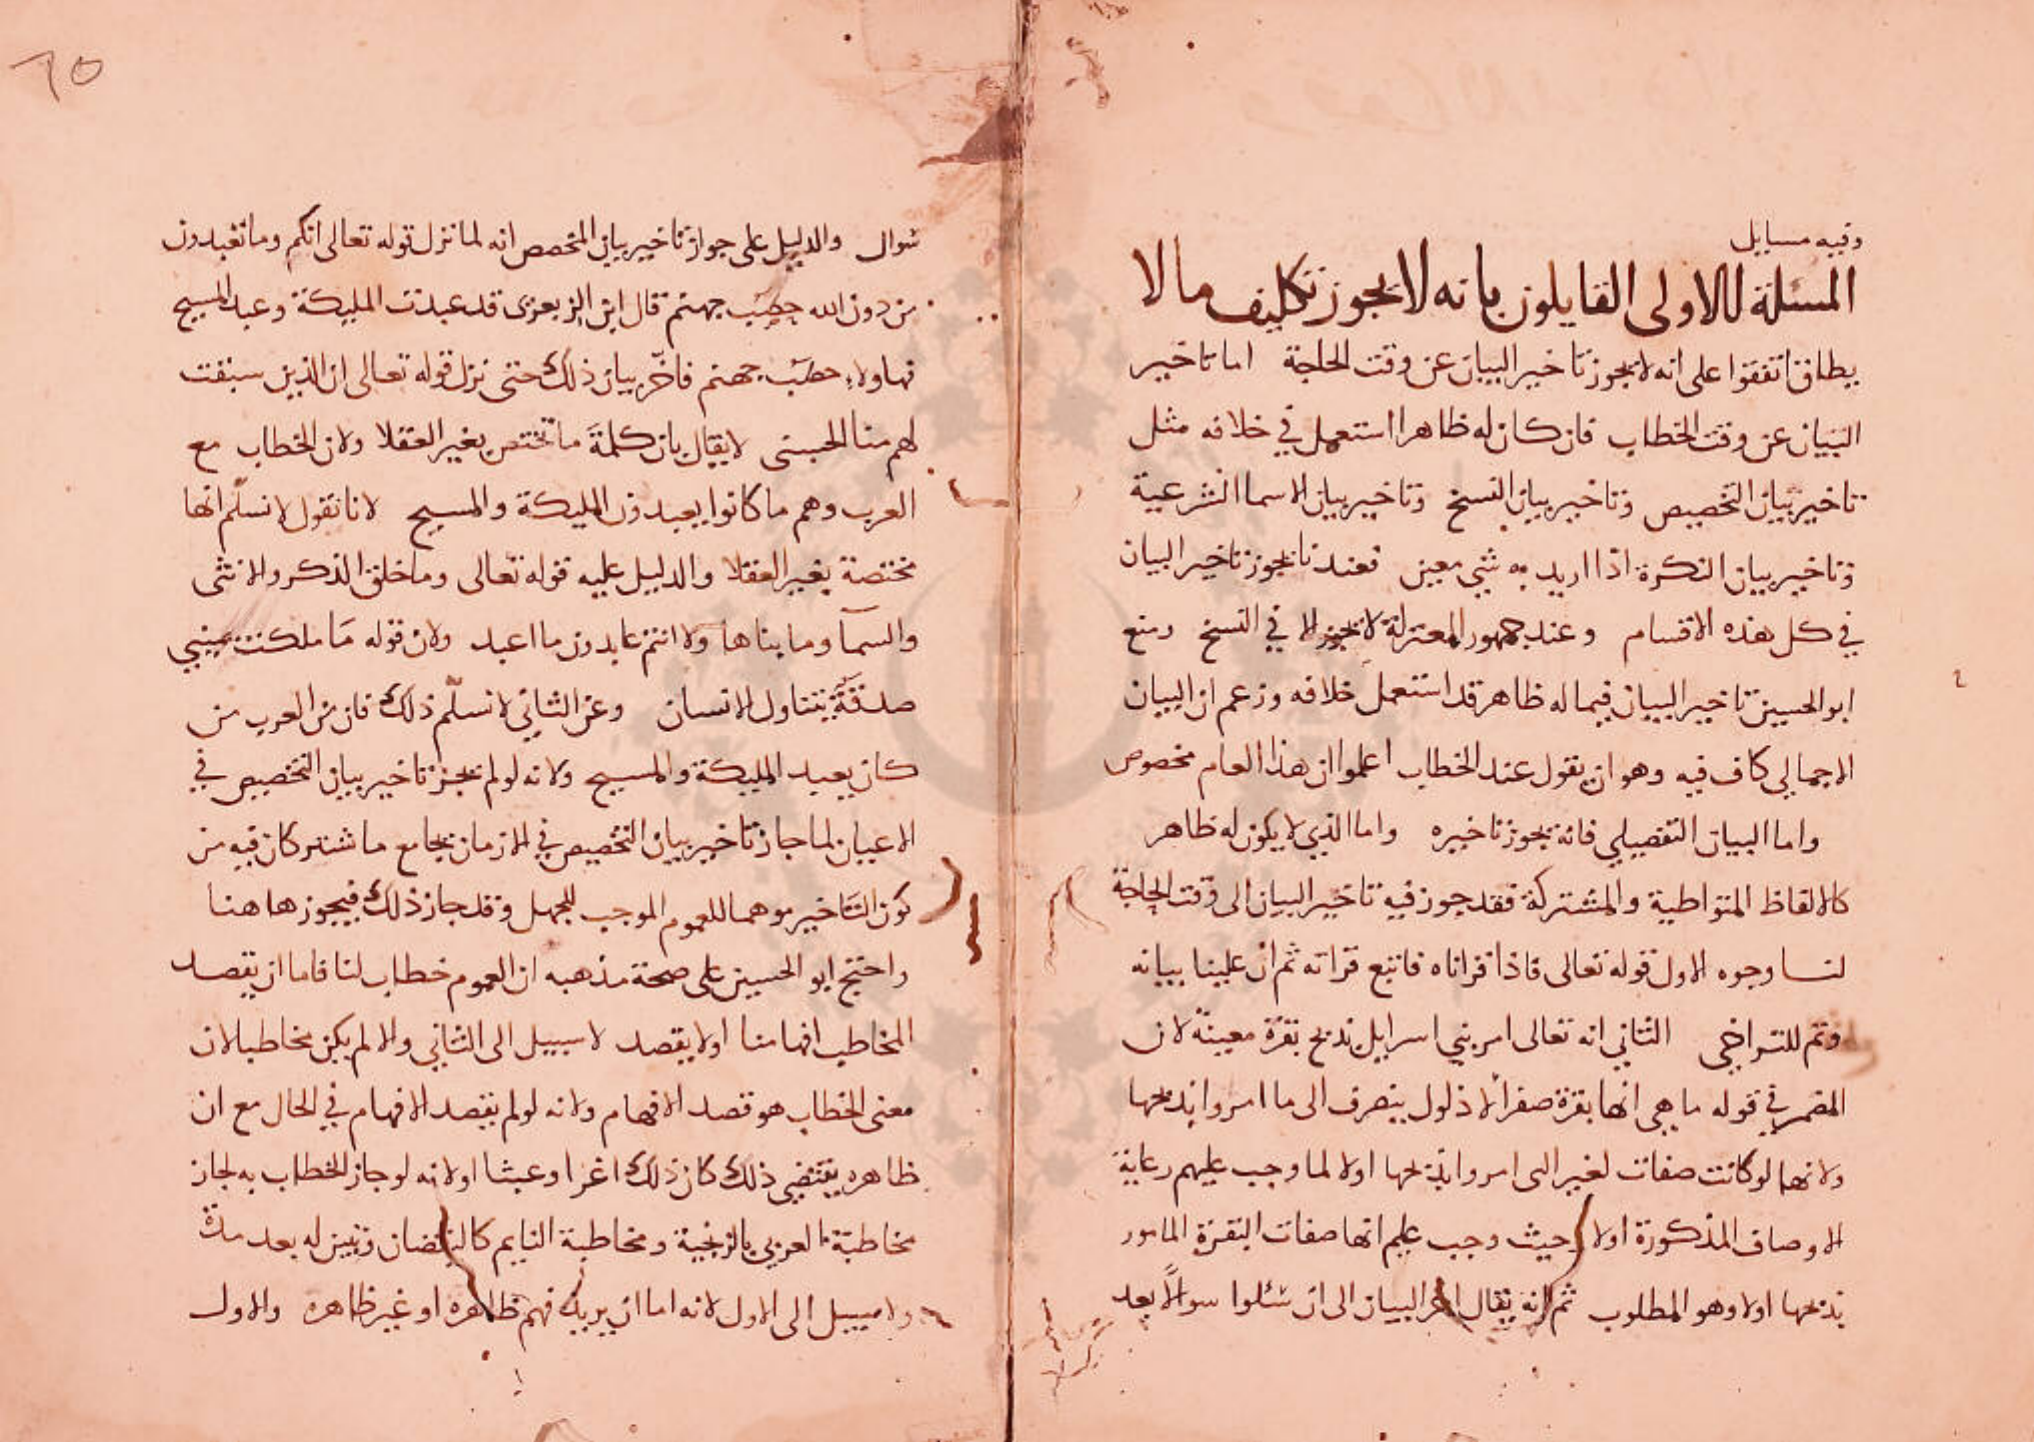 وفيه مسايل
المسئلة الاولى القايلون بانه لا يجوز تكليف ما لا
يطاق اتفقوا على انه لا يجوز تاخير البيان عن وقت الحاجة اما تاخير
البيان عن وقت الخطاب فان كان له ظاهرا استعمل في خلافه مثل
تاخير بيان التخصيص وتاخير بيان النسخ وتاخير بيان الاسما الشرعية
وتاخير بيان النكرة اذا اريد به شي معين فعندنا يجوز تاخير البيان
في كل هذه الاقسام وعند جمهور المعتزلة لا يجوز الا في النسخ ومنع
ابو الحسين تاخير البيان فيما له ظاهر قد استعمل خلافه وزعم ان البيان
الاجمالي كاف فيه وهو ان يقول عند الخطاب اعلموا ان هذا العام مخصوص
واما البيان التفصيلي فانه يجوز تاخيره واما الذي لا يكون له ظاهر
كالالفاظ المتواطية والمشتركة فقد جوز فيه تاخير البيان الى وقت الحاجة
لنا وجوه الاول قوله تعالى فاذا قراناه فاتبع قرانه ثم ان علينا بيانه
وثم للتراخي الثاني انه تعالى امر بني اسرايل بذبح بقرة معينة لان
المضمر في قوله ما هي انها بقرة صفرا لا ذلول ينصرف الى ما امروا بذبحها
ولانها لو كانت صفات لغير التى امروا بذبحها اولا لما وجب عليهم رعاية
الاوصاف المذكورة اولا وحيث وجب علم انها صفات البقرة المامور
بذبحها اولا وهو المطلوب ثم انه تعالى اخر البيان الى ان سئلوا سوالا بعد
٦٥
سوال والدليل على جواز تاخير بيان المخصص انه لما نزل قوله تعالى انكم وما تعبدون
من دون الله حصب جهنم قال ابن الزبعرى قد عبدت المليكة وعبد المسيح
فهاولاء حصب جهنم فاخّر بيان ذلك حتى نزل قوله تعالى ان الذين سبقت
لهم منا الحسنى لا يقال بان كلمة ما تختص بغير العقلا ولان الخطاب مع
العرب وهم ما كانوا يعبدون المليكة والمسيح لانا نقول لا نسلّم انها
مختصة بغير العقلا والدليل عليه قوله تعالى وما خلق الذكر والانثى
والسمآ وما بناها ولا انتم عابدون ما اعبد ولان قوله مَا ملكت يميني
صدقة يتناول الانسان وعن الثاني لا نسلّم ذلك فان من العرب من
كان يعبد المليكة والمسيح ولانه لو لم يجز تاخير بيان التخصيص في
الاعيان لما جاز تاخير بيان التخصيص في الازمان بجامع ما يشتركان فيه من
كون التاخير موهما للعموم الموجب للجهل وقد جاز ذلك فيجوز هاهنا
واحتج ابو الحسين على صحة مذهبه ان العموم خطاب لنا فاما ان يقصد
المخاطب افهامنا اولا يقصد لا سبيل الى الثاني والا لم يكن مخاطبا لان
معنى الخطاب هو قصد الافهام ولانه لو لم يقصد الافهام في الحال مع ان
ظاهره يقتضي ذلك كان ذلك اغرا وعبثا اولانه لو جاز الخطاب به لجاز
مخاطبة العربي بالزنجية ومخاطبة النايم كاليقضان وتبين له بعد مدة
ولا سبيل الى الاول لانه اما ان يريد فهم ظاهره او غير ظاهره والاول